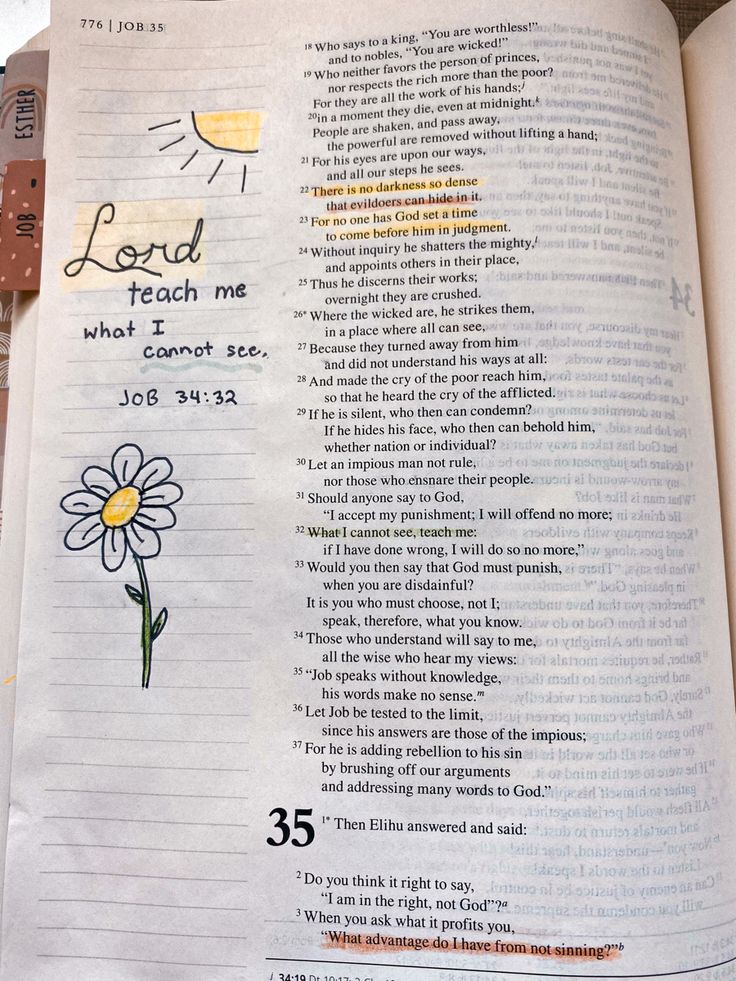 776 | JOB 35
ESTHER
JOB
Lord
teach me
what I
cannot see.
JOB 34:32
18 Who says to a king, “You are worthless!”
and to nobles, “You are wicked!”
19 Who neither favors the person of princes,
nor respects the rich more than the poor?
For they are all the work of his hands;j
20 in a moment they die, even at midnight.k
People are shaken, and pass away,
the powerful are removed without lifting a hand;
21 For his eyes are upon our ways,
and all our steps he sees.
22 There is no darkness so dense
that evildoers can hide in it.
23 For no one has God set a time
to come before him in judgment.
24 Without inquiry he shatters the mighty,l
and appoints others in their place,
25 Thus he discerns their works;
overnight they are crushed.
26* Where the wicked are, he strikes them,
in a place where all can see,
27 Because they turned away from him
and did not understand his ways at all:
28 And made the cry of the poor reach him,
so that he heard the cry of the afflicted.
29 If he is silent, who then can condemn?
If he hides his face, who then can behold him,
whether nation or individual?
30 Let an impious man not rule,
nor those who ensnare their people.
31 Should anyone say to God,
“I accept my punishment; I will offend no more;
32 What I cannot see, teach me:
if I have done wrong, I will do so no more,”
33 Would you then say that God must punish,
when you are disdainful?
It is you who must choose, not I;
speak, therefore, what you know.
34 Those who understand will say to me,
all the wise who hear my views:
35 “Job speaks without knowledge,
his words make no sense.m
36 Let Job be tested to the limit,
since his answers are those of the impious;
37 For he is adding rebellion to his sin
by brushing off our arguments
and addressing many words to God.”
35 1* Then Elihu answered and said:
2 Do you think it right to say,
“I am in the right, not God”?a
3 When you ask what it profits you,
“What advantage do I have from not sinning?”b